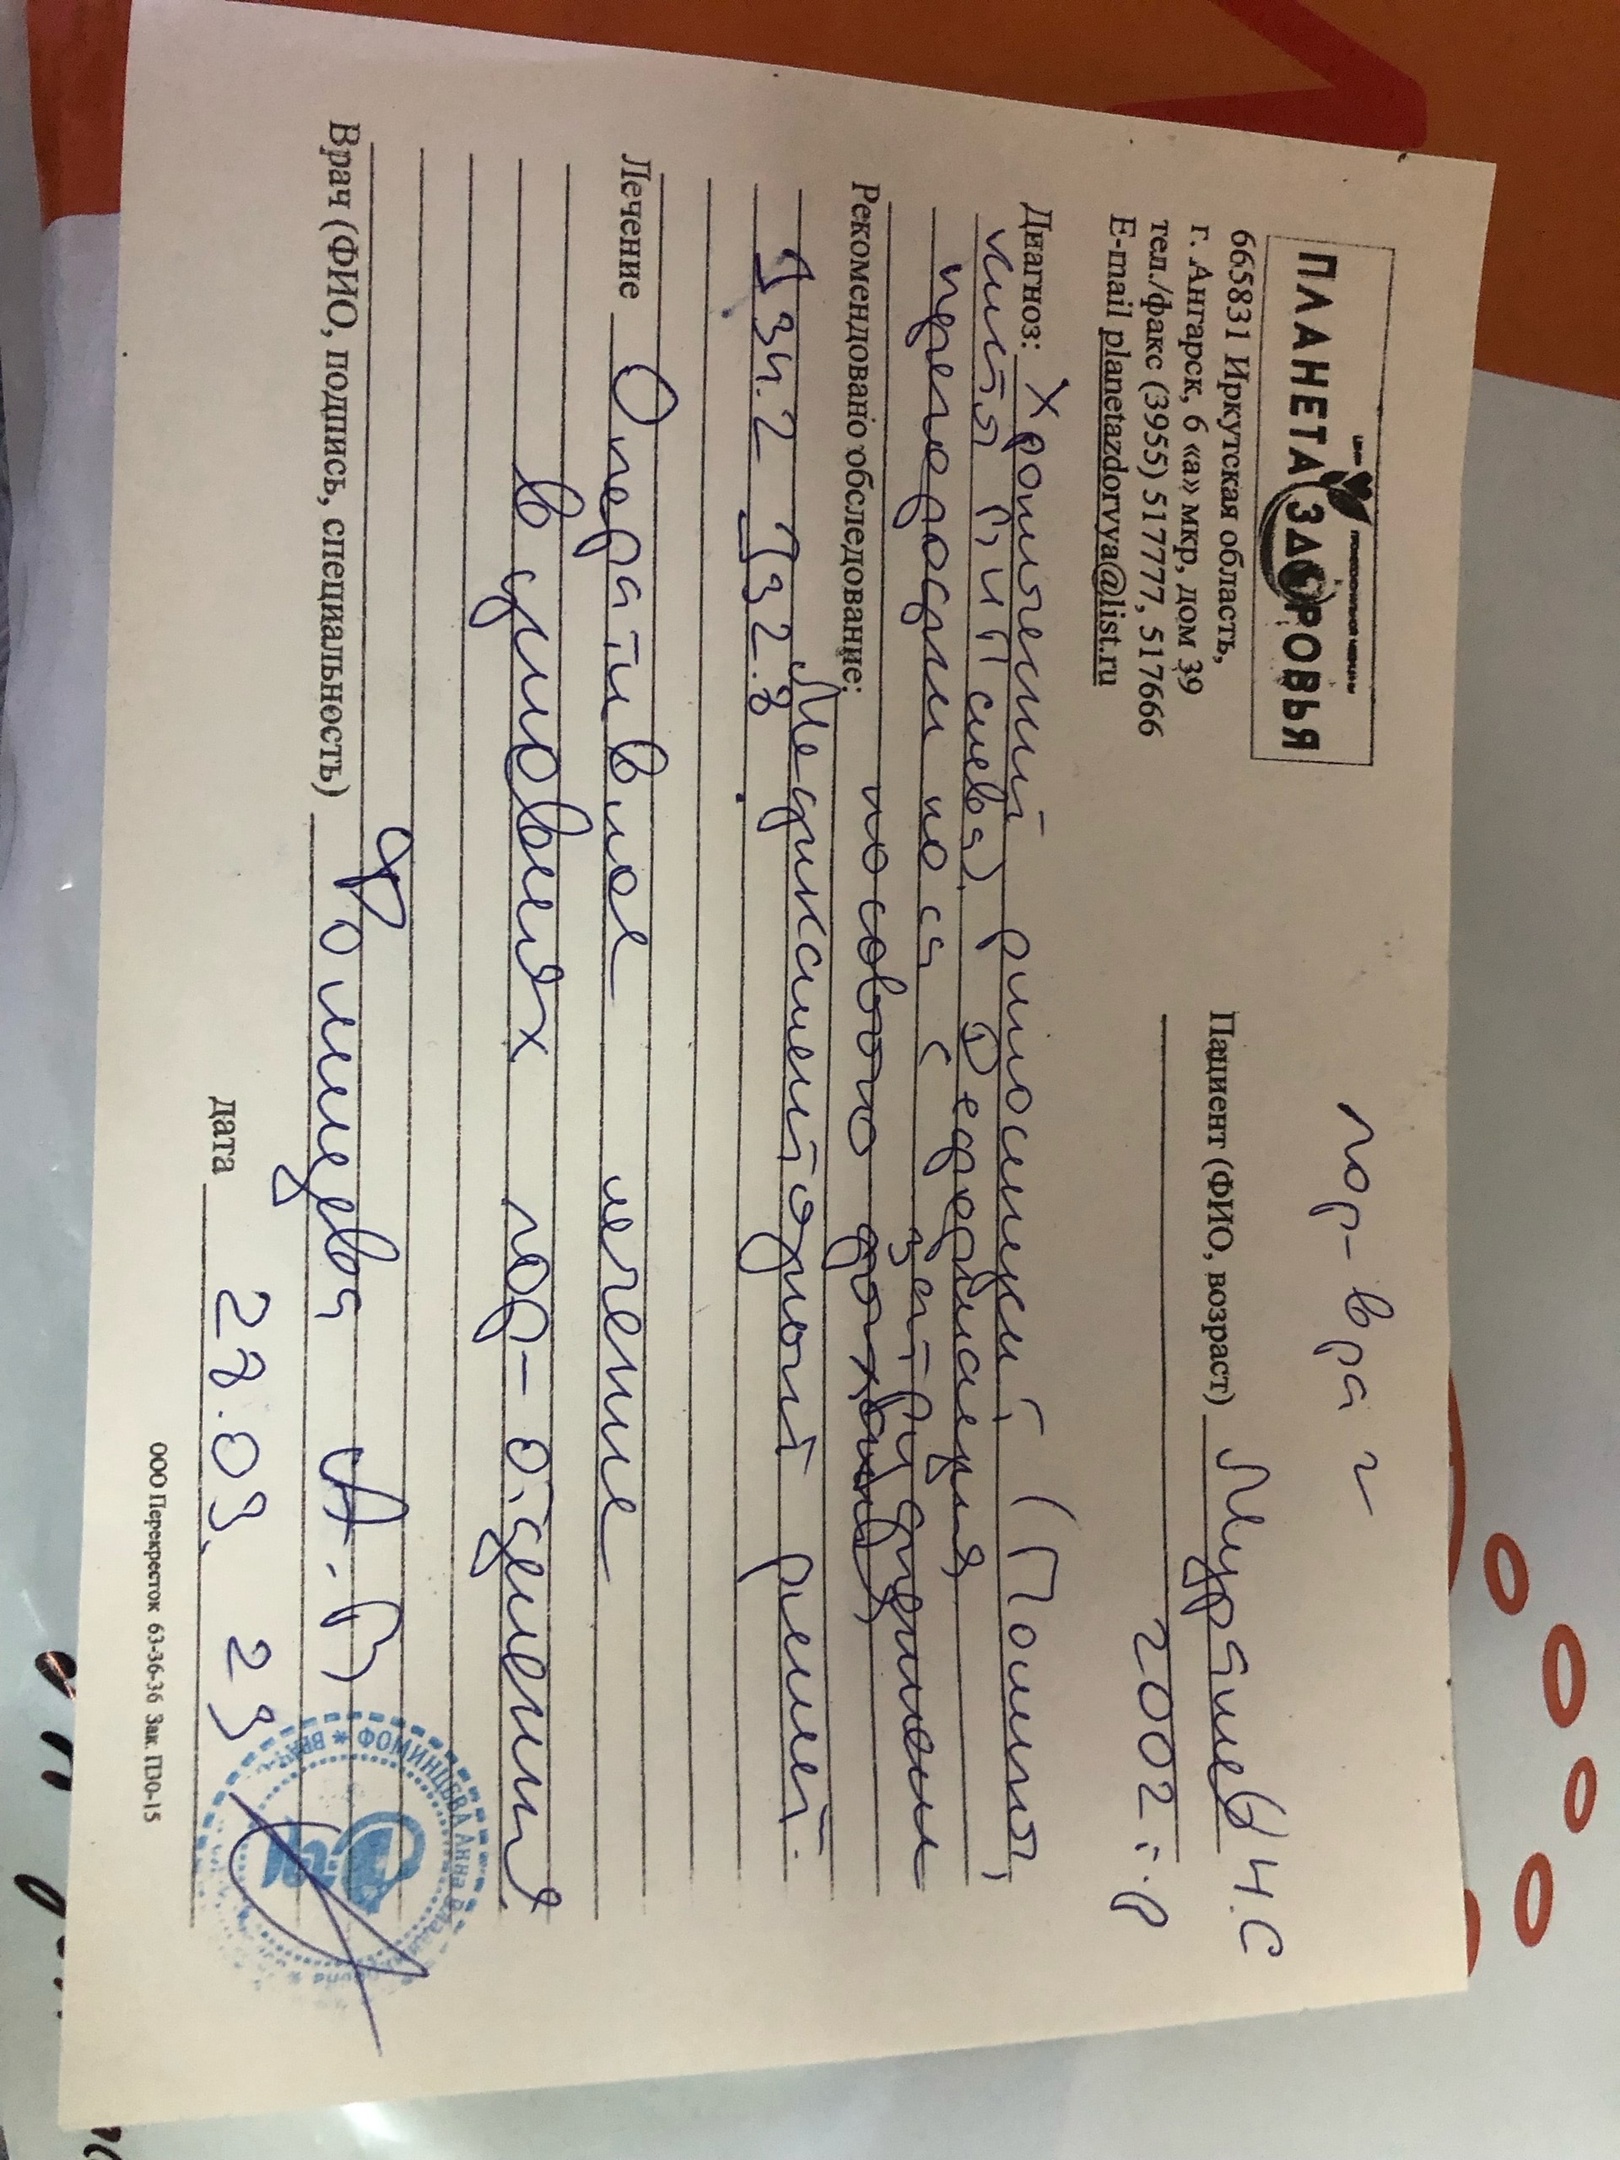 Центр профессиональной медицины
ПЛАНЕТА ЗДОРОВЬЯ
665831 Иркутская область,
г. Ангарск, 6 «а» мкр, дом 39
тел./факс (3955) 517777, 517666
E-mail planetazdorvya@list.ru
лор-врач
Пациент (ФИО, возраст) Мурашев Н.С
2002 г.р
Диагноз: Хронический риносинусит (Полипы,
киста ВЧП слева). Деформация
перегородки носа с затруднением
Рекомендовано обследование: носового дыхания,
Медикаментозный ринит.
J34.2 J32.8
Лечение Оперативное лечение
в условиях лор-отделения.
Врач (ФИО, подпись, специальность) Фоминцева А.В
дата 28.09.23
ФОМИНЦЕВА Анна В
* ВРАЧ
ООО Перекресток 63-36-36 Зак. ПЗ0-15